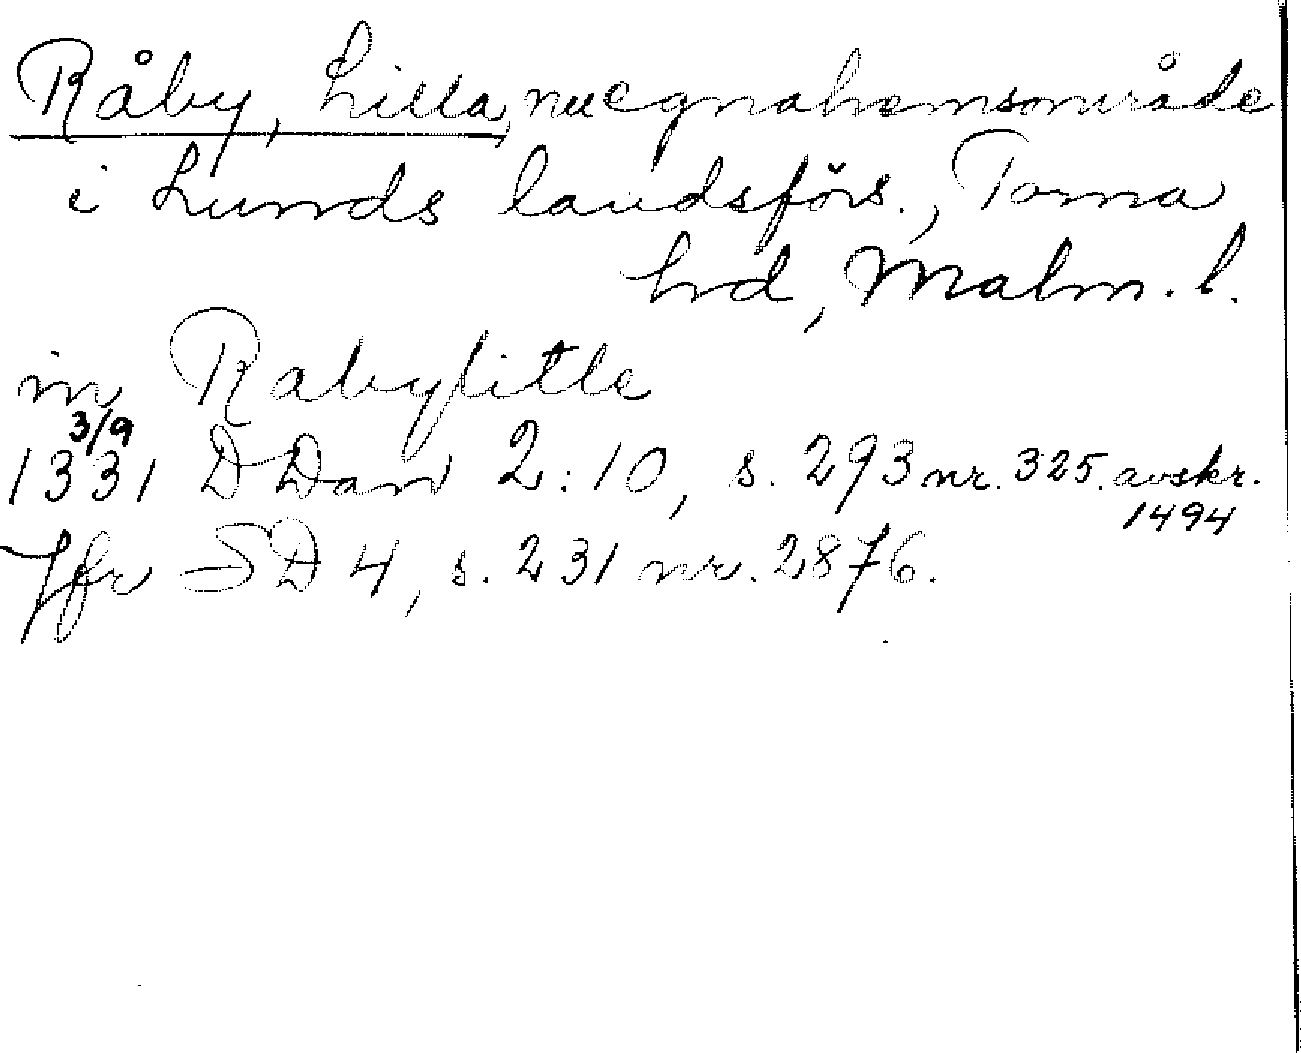 Råby, Lilla, nu egnahemsområde
i Lunds landsförs., Torna
hd, Malm. l.
in Rabylitle
3/9
1331 D Dan 2:10, s. 293 nr. 325. avskr.
1494
Jfr SD 4, s. 231 nr. 2876.